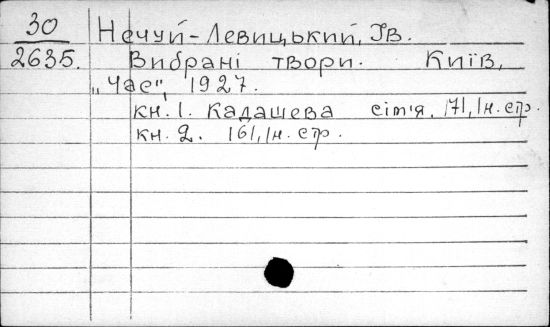 30 Нечуй-Левицький, Ів.
2635. Вибрані твори. Київ,
„Час", 1927.
кн. 1. Кадашева сім'я. 171, Iн. стр.
кн. 2. 161, Iн. стр.